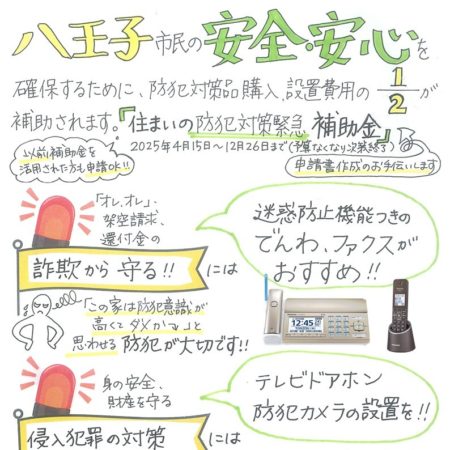 八王子市民の安全・安心を
確保するために、防犯対策品購入、設置費用の1/2が
補助されます。『住まいの防犯対策緊急補助金』
2025年4月15日〜12月26日まで(予算なくなり次第終了)
以前補助金を
活用された方も申請OK!!
申請書作成のお手伝いします
「オレ、オレ」、
架空請求、
還付金の
詐欺から守る!!には
迷惑防止機能つきの
でんわ、ファクスが
おすすめ!!
12:45
「この家は防犯意識が
高くてダメかでも」と
思わせる防犯が大切です!!
身の安全、
財産を守る
侵入犯罪の対策には
テレビドアホン
防犯カメラの設置を!!